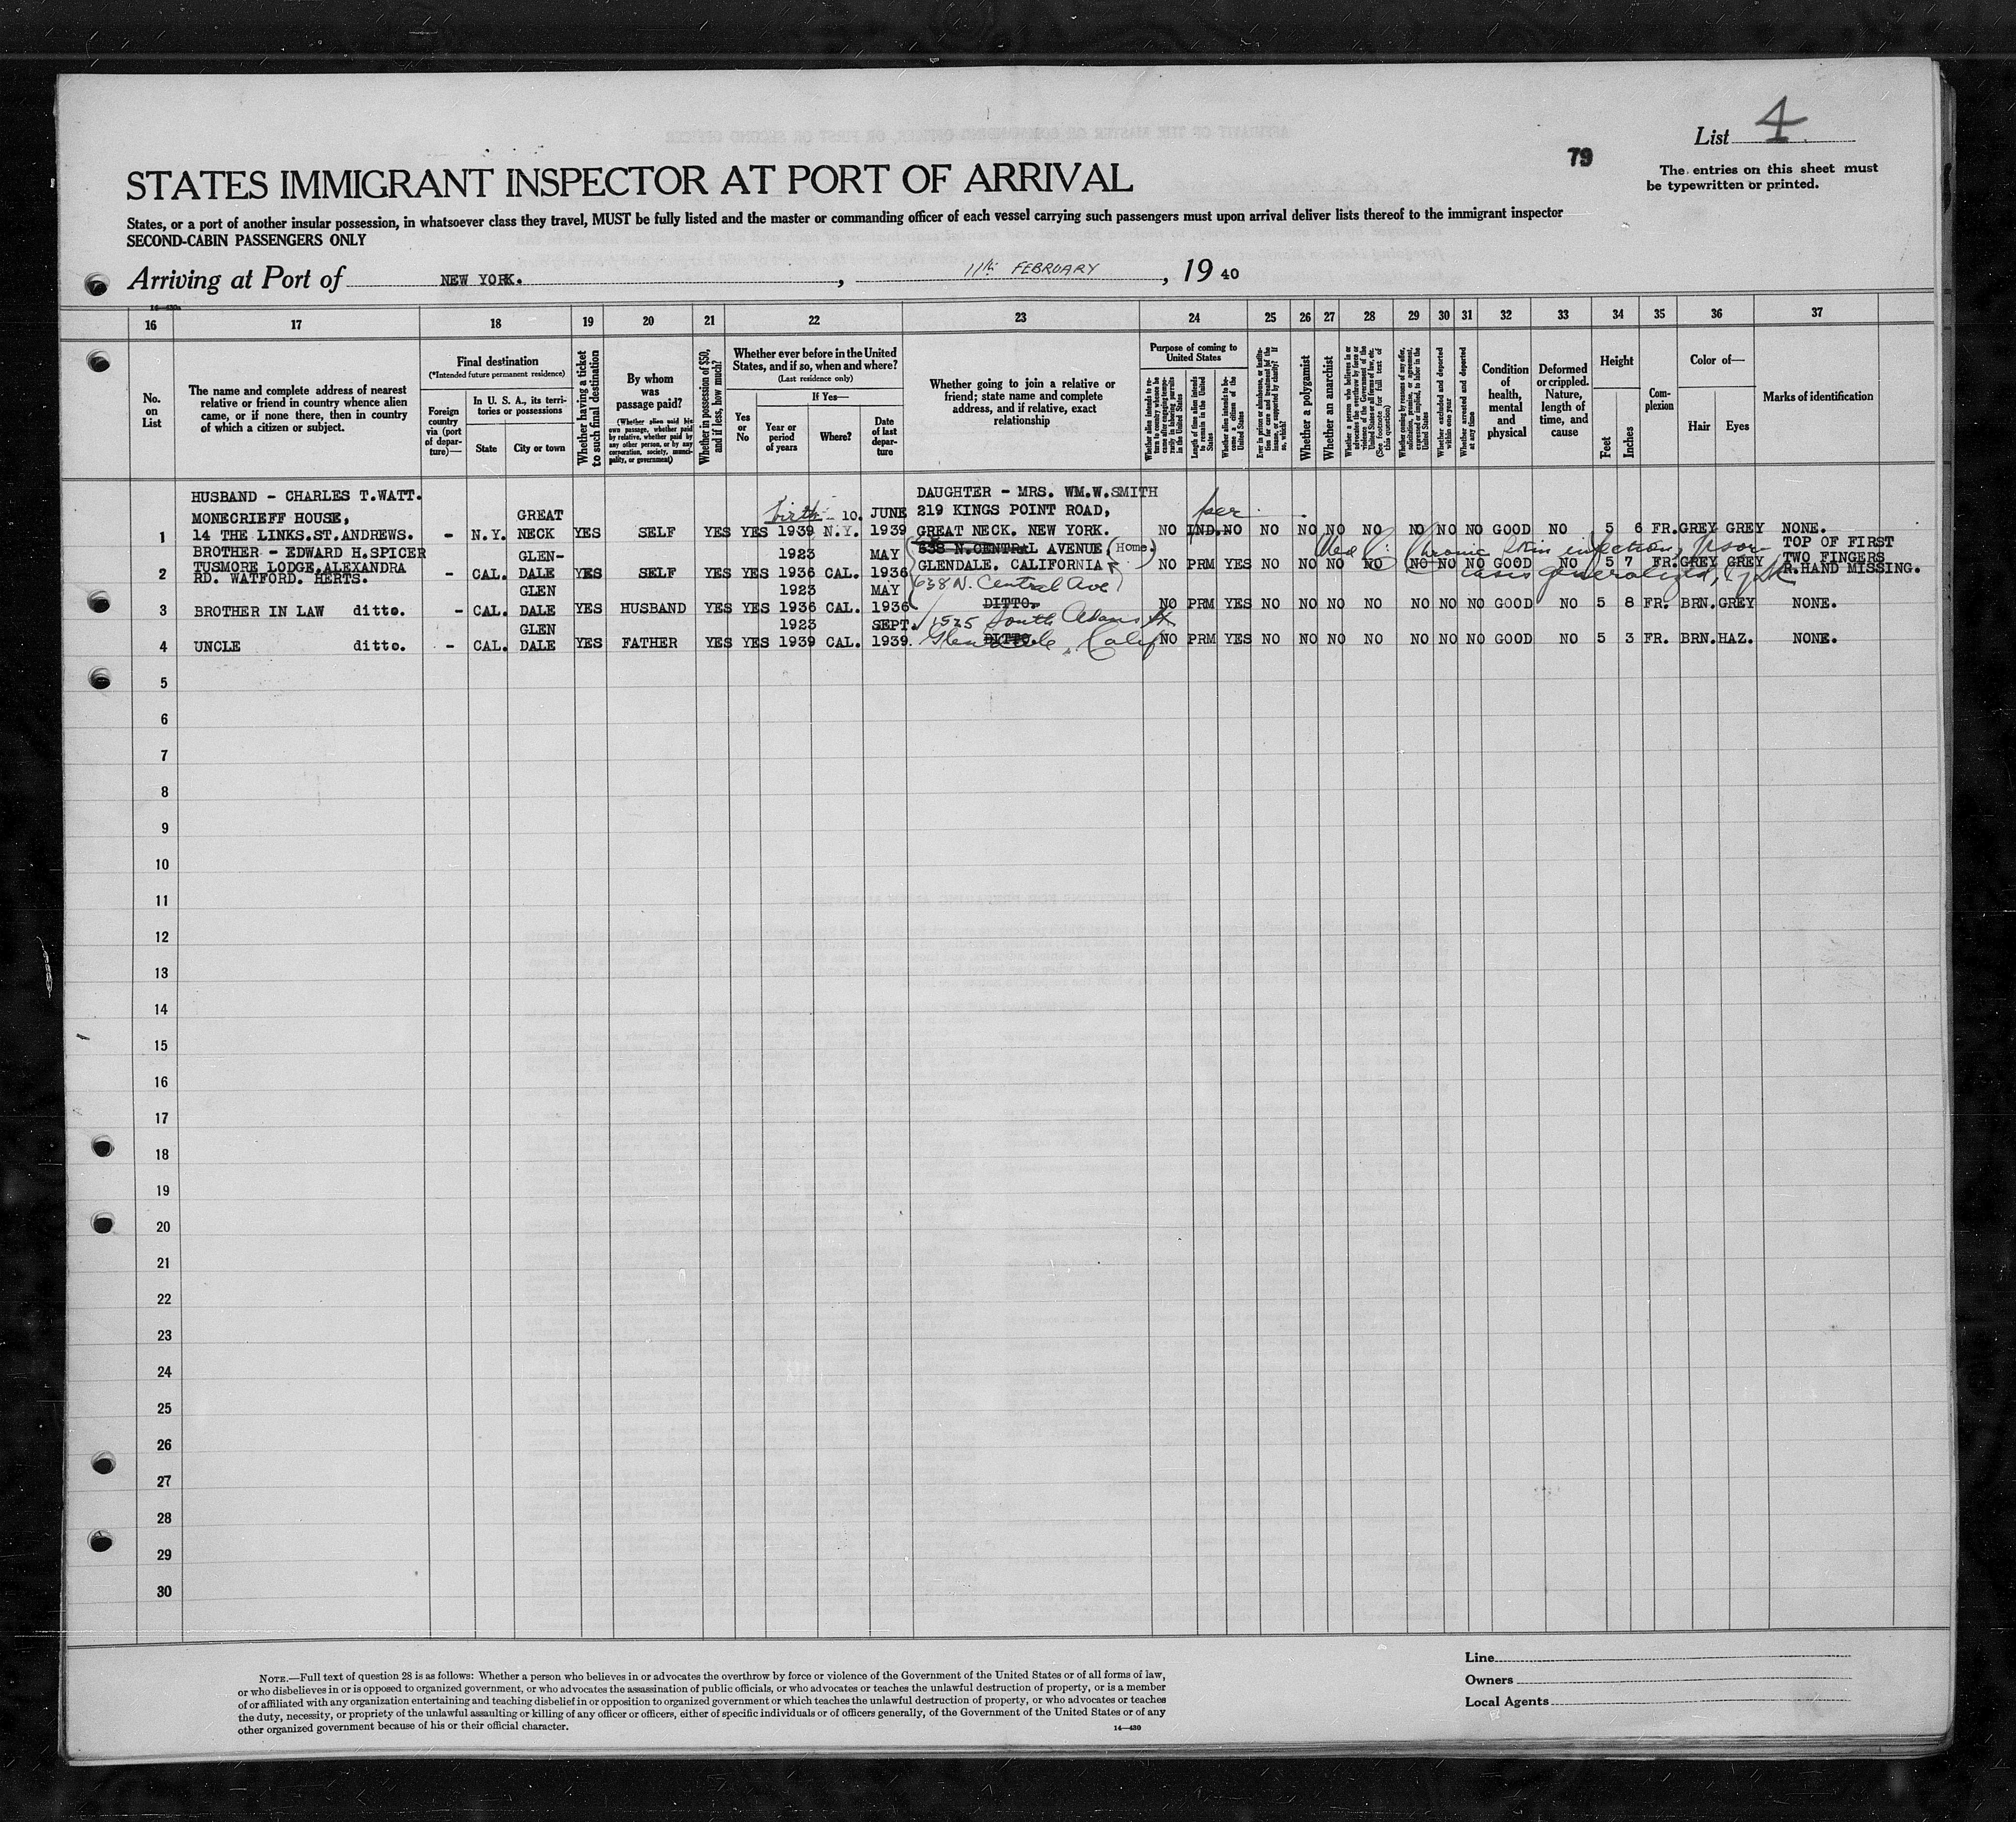 List 4
79
The entries on this sheet must
be typewritten or printed.
STATES IMMIGRANT INSPECTOR AT PORT OF ARRIVAL
States, or a port of another insular possession, in whatsoever class they travel, MUST be fully listed and the master or commanding officer of each vessel carrying such passengers must upon arrival deliver lists thereof to the immigrant inspector
SECOND-CABIN PASSENGERS ONLY
Arriving at Port of NEW YORK. , 11th FEBRUARY , 19 40
14—430a
16 17 18 19 20 21 22 23 24 25 26 27 28 29 30 31 32 33 34 35 36 37
No.
on
List
The name and complete address of nearest
relative or friend in country whence alien
came, or if none there, then in country
of which a citizen or subject.
Final destination
(*Intended future permanent residence)
Foreign
country
via (port
of depar-
ture)—
In U. S. A., its terri-
tories or possessions
State
City or town
Whether having a ticket
to such final destination
By whom
was
passage paid?
(Whether alien paid his
own passage, whether paid
by relative, whether paid by
any other person, or by any
corporation, society, munici-
pality, or government)
Whether in possession of $50,
and if less, how much?
Whether ever before in the United
States, and if so, when and where?
(Last residence only)
Yes
or
No
If Yes—
Year or
period
of years
Where?
Date
of last
depar-
ture
Whether going to join a relative or
friend; state name and complete
address, and if relative, exact
relationship
Purpose of coming to
United States
Whether alien intends to re-
turn to country whence he
came after engaging tempo-
rarily in laboring pursuits
in the United States
Length of time alien intends
to remain in the United
States
Whether alien intends to be-
come a citizen of the
United States
Ever in prison or almshouse, or institu-
tion for care and treatment of the
insane, or supported by charity? If
so, which?
Whether a polygamist
Whether an anarchist
Whether a person who believes in or
advocates the overthrow by force or
violence of the Government of the
United States or all forms of law, etc.
(See footnote for full text of
this question)
Whether coming by reasons of any offer,
solicitation, promise, or agreement,
expressed or implied, to labor in the
United States
Whether excluded and deported
within one year
Whether arrested and deported
at any time
Condition
of
health,
mental
and
physical
Deformed
or crippled.
Nature,
length of
time, and
cause
Height
Feet
Inches
Com-
plexion
Color of—
Hair
Eyes
Marks of identification
HUSBAND - CHARLES T.WATT.
MONECRIEFF HOUSE,
1 14 THE LINKS.ST.ANDREWS. - N.Y. GREAT NECK YES SELF YES YES birth - 10. 1939 N.Y. JUNE 1939
DAUGHTER - MRS. WM.W.SMITH
219 KINGS POINT ROAD,
GREAT NECK. NEW YORK. NO IND. per NO NO NO NO NO NO NO NO GOOD NO 5 6 FR. GREY GREY NONE.
BROTHER - EDWARD H.SPICER
TUSMORE LODGE,ALEXANDRA
2 RD. WATFORD. HERTS. - CAL. GLEN-DALE YES SELF YES YES 1923 1936 CAL. MAY 1936
638 N.CENTRAL AVENUE. (Home.)
GLENDALE. CALIFORNIA NO PRM YES NO NO NO NO NO NO NO GOOD NO 5 7 FR. GREY GREY
TOP OF FIRST
TWO FINGERS
R.HAND MISSING.
Chronic skin infection,
generalized,
638 N. Central Ave
3 BROTHER IN LAW ditto. - CAL. GLEN DALE YES HUSBAND YES YES 1923 1936 CAL. MAY 1936 DITTO. NO PRM YES NO NO NO NO NO NO NO GOOD NO 5 8 FR. BRN. GREY NONE.
1525 South Adams St
Glendale, Calif
4 UNCLE ditto. - CAL. GLEN DALE YES FATHER YES YES 1923 1939 CAL. SEPT. 1939. DITTO. NO PRM YES NO NO NO NO NO NO NO GOOD NO 5 3 FR. BRN. HAZ. NONE.
5
6
7
8
9
10
11
12
13
14
15
16
17
18
19
20
21
22
23
24
25
26
27
28
29
30
NOTE.—Full text of question 28 is as follows: Whether a person who believes in or advocates the overthrow by force or violence of the Government of the United States or of all forms of law,
or who disbelieves in or is opposed to organized government, or who advocates the assassination of public officials, or who advocates or teaches the unlawful destruction of property, or is a member
of or affiliated with any organization entertaining and teaching disbelief in or opposition to organized government or which teaches the unlawful destruction of property, or who advocates or teaches
the duty, necessity, or propriety of the unlawful assaulting or killing of any officer or officers, either of specific individuals or of officers generally, of the Government of the United States or of any
other organized government because of his or their official character.
14—430
Line
Owners
Local Agents